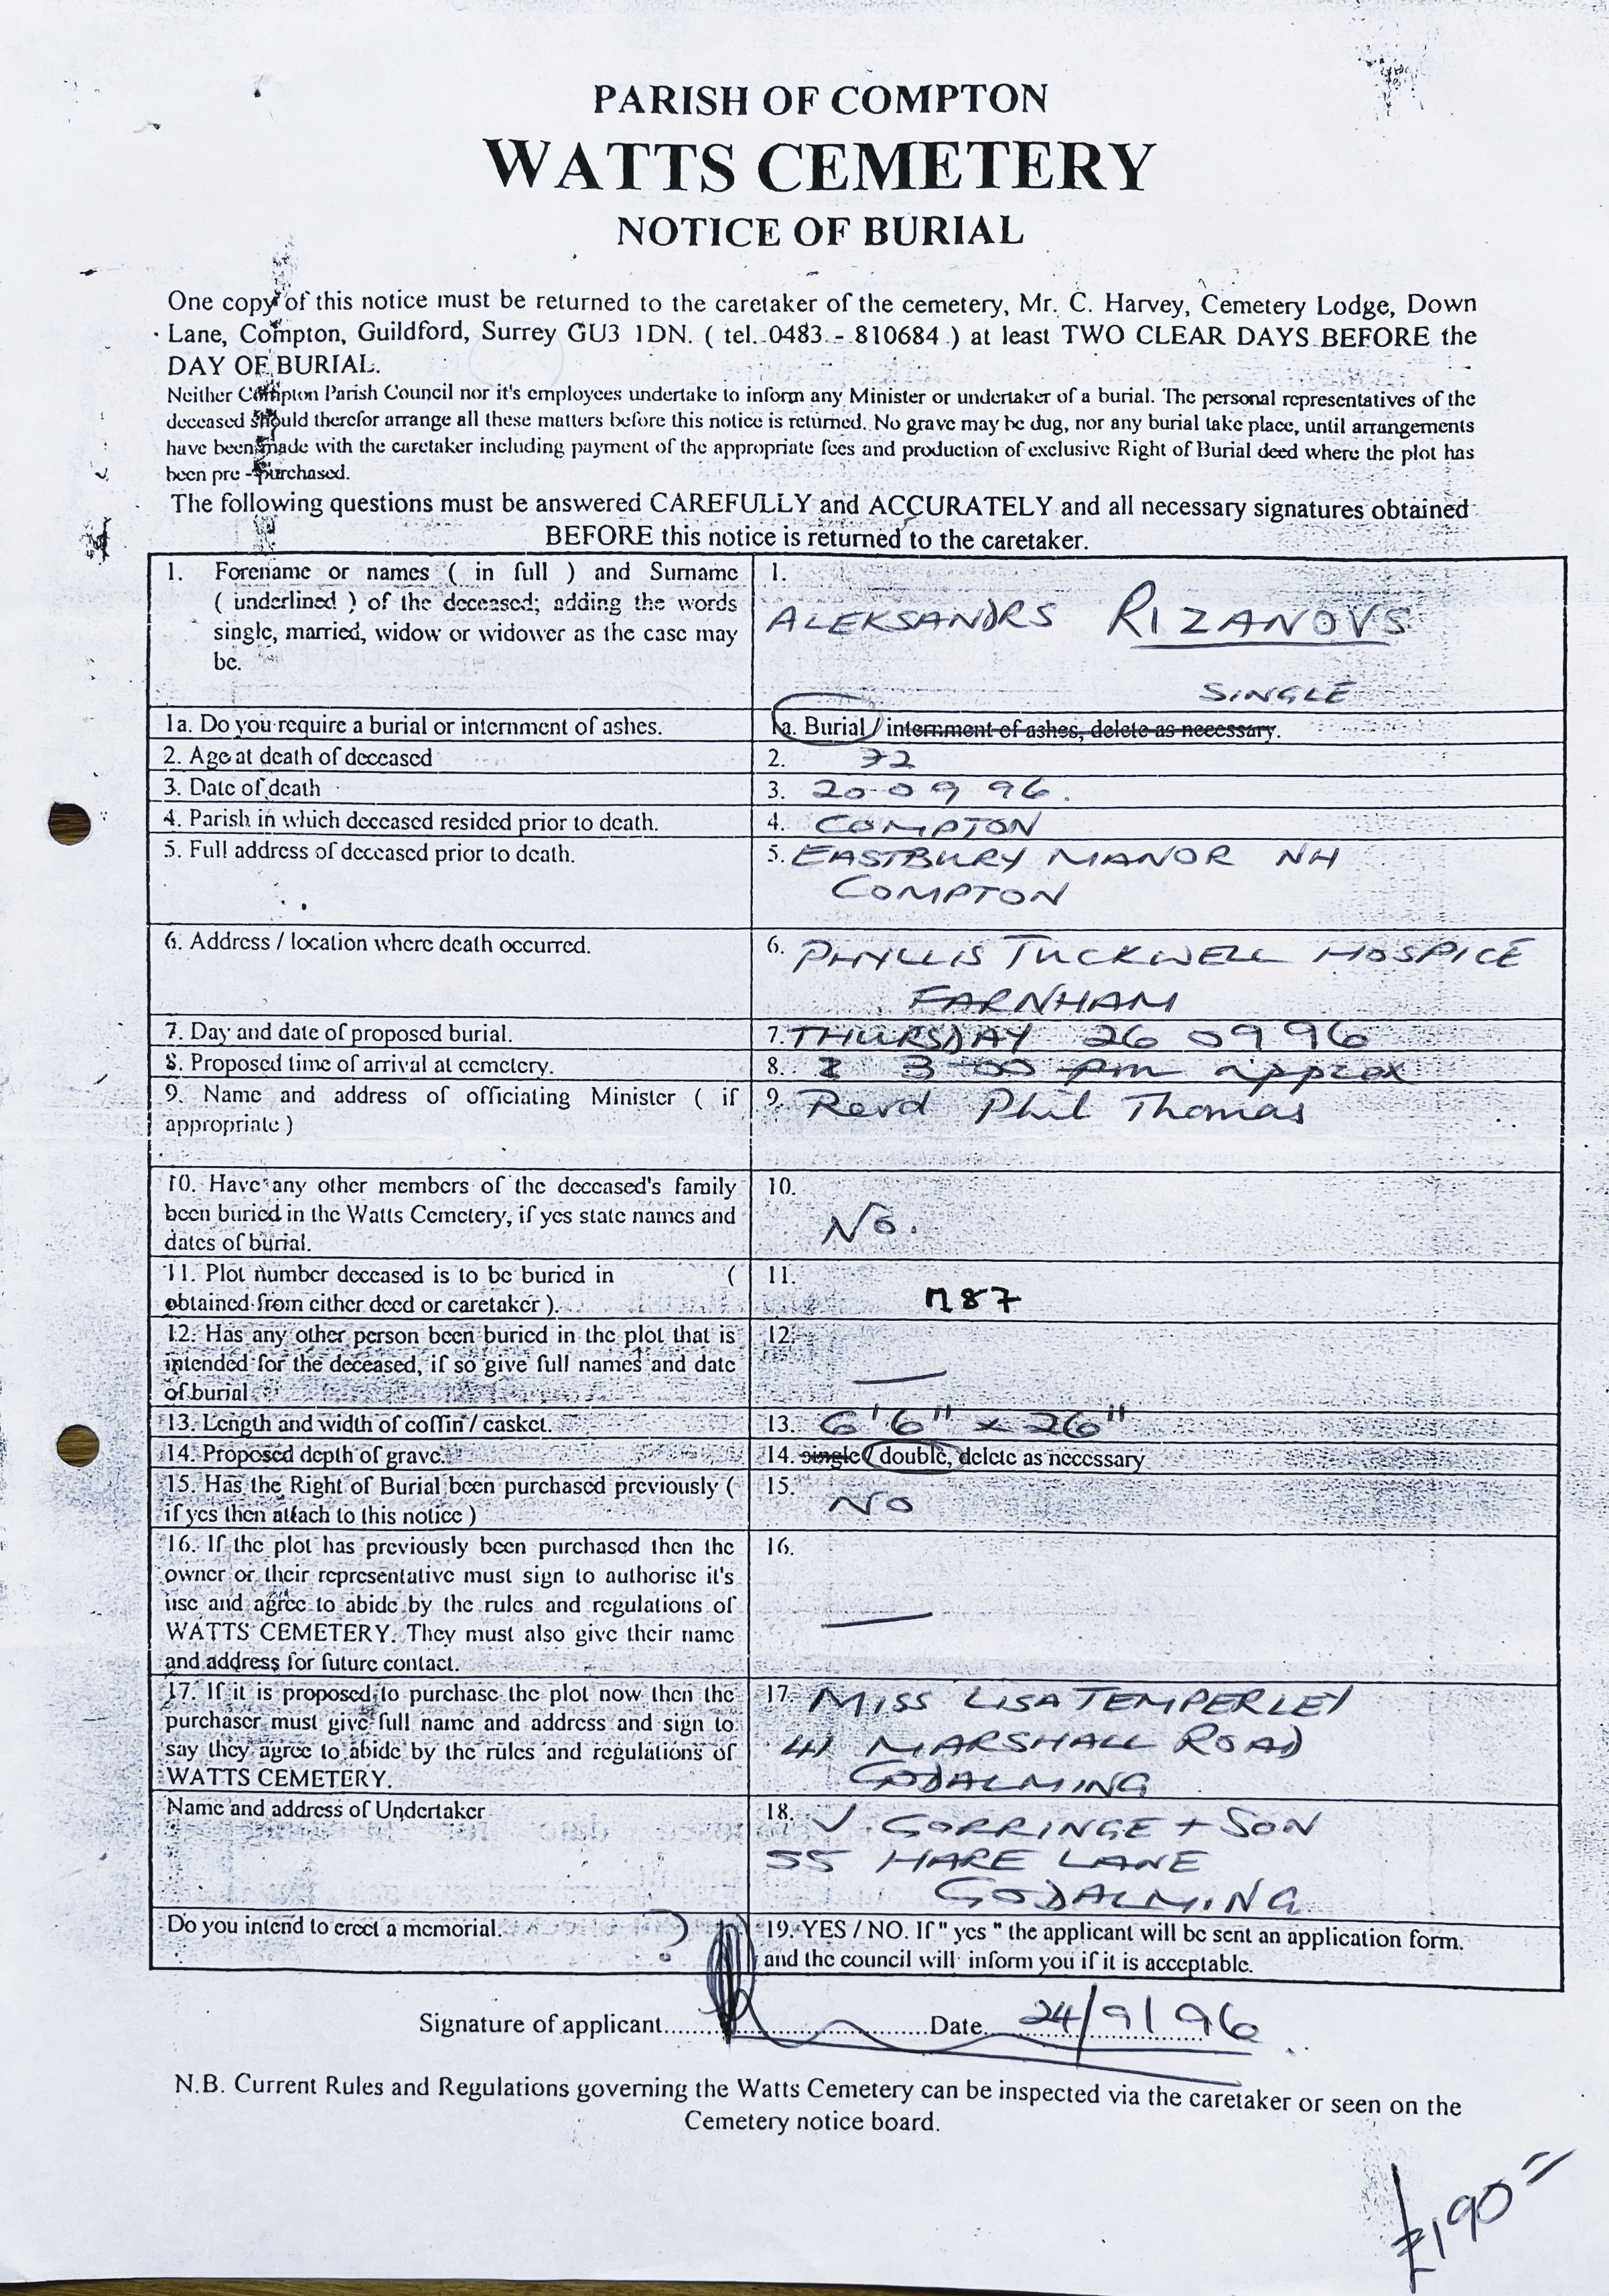 PARISH OF COMPTON
WATTS CEMETERY
NOTICE OF BURIAL
One copy of this notice must be returned to the caretaker of the cemetery, Mr. C. Harvey, Cemetery Lodge, Down
Lane, Compton, Guildford, Surrey GU3 1DN. ( tel. 0483 - 810684 ) at least TWO CLEAR DAYS BEFORE the
DAY OF BURIAL.
Neither Compton Parish Council nor it's employees undertake to inform any Minister or undertaker of a burial. The personal representatives of the
deceased should therefor arrange all these matters before this notice is returned. No grave may be dug, nor any burial take place, until arrangements
have been made with the caretaker including payment of the appropriate fees and production of exclusive Right of Burial deed where the plot has
been pre - purchased.
The following questions must be answered CAREFULLY and ACCURATELY and all necessary signatures obtained
BEFORE this notice is returned to the caretaker.
1. Forename or names ( in full ) and Surname
( underlined ) of the deceased; adding the words
single, married, widow or widower as the case may
be.
1.
ALEKSANDRS RIZANOVS
SINGLE
1a. Do you require a burial or internment of ashes.
1a. Burial / internment of ashes, delete as necessary.
2. Age at death of deceased
2. 72
3. Date of death
3. 20 09 96.
4. Parish in which deceased resided prior to death.
4. COMPTON
5. Full address of deceased prior to death.
5. EASTBURY MANOR NH
COMPTON
6. Address / location where death occurred.
6. PHYLLIS TUCKWELL HOSPICE
FARNHAM
7. Day and date of proposed burial.
7. THURSDAY 26 09 96
8. Proposed time of arrival at cemetery.
8. 3 00 pm approx
9. Name and address of officiating Minister ( if
appropriate )
9. Revd Phil Thomas
10. Have any other members of the deceased's family
been buried in the Watts Cemetery, if yes state names and
dates of burial.
10.
No.
11. Plot number deceased is to be buried in (
obtained from either deed or caretaker ).
11.
M87
12. Has any other person been buried in the plot that is
intended for the deceased, if so give full names and date
of burial
12.
—
13. Length and width of coffin / casket.
13. 6'6" x 26"
14. Proposed depth of grave.
14. single / double, delete as necessary
15. Has the Right of Burial been purchased previously (
if yes then attach to this notice )
15.
No
16. If the plot has previously been purchased then the
owner or their representative must sign to authorise it's
use and agree to abide by the rules and regulations of
WATTS CEMETERY. They must also give their name
and address for future contact.
16.
—
17. If it is proposed to purchase the plot now then the
purchaser must give full name and address and sign to
say they agree to abide by the rules and regulations of
WATTS CEMETERY.
17. MISS LISA TEMPERLEY
41 MARSHALL ROAD
GODALMING
Name and address of Undertaker
18. J. GORRINGE + SON
55 HARE LANE
GODALMING
Do you intend to erect a memorial. ?
19. YES / NO. If " yes " the applicant will be sent an application form.
and the council will inform you if it is acceptable.
Signature of applicant.....................Date 24/9/96
N.B. Current Rules and Regulations governing the Watts Cemetery can be inspected via the caretaker or seen on the
Cemetery notice board.
£190=